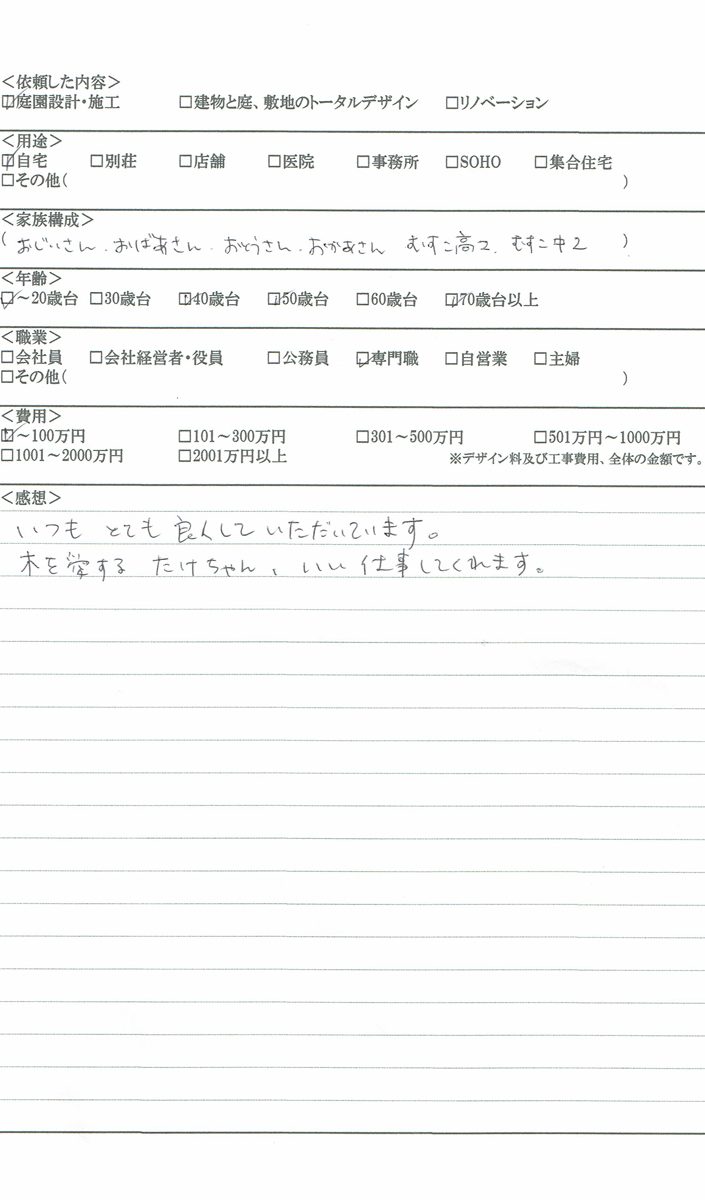 ＜依頼した内容＞
☑庭園設計・施工 □建物と庭、敷地のトータルデザイン □リノベーション
＜用途＞
☑自宅 □別荘 □店舗 □医院 □事務所 □SOHO □集合住宅
□その他( )
＜家族構成＞
( おじいさん.おばあさん.おとうさん.おかあさん むすこ高2. むすこ中2 )
＜年齢＞
☑～20歳台 □30歳台 ☑40歳台 ☑50歳台 □60歳台 ☑70歳台以上
＜職業＞
□会社員 □会社経営者・役員 □公務員 ☑専門職 □自営業 □主婦
□その他( )
＜費用＞
☑～100万円 □101～300万円 □301～500万円 □501万円～1000万円
□1001～2000万円 □2001万円以上 ※デザイン料及び工事費用、全体の金額です。
＜感想＞
いつも とても 良くして いただいています。
木を愛する たけちゃん、いい 仕事してくれます。